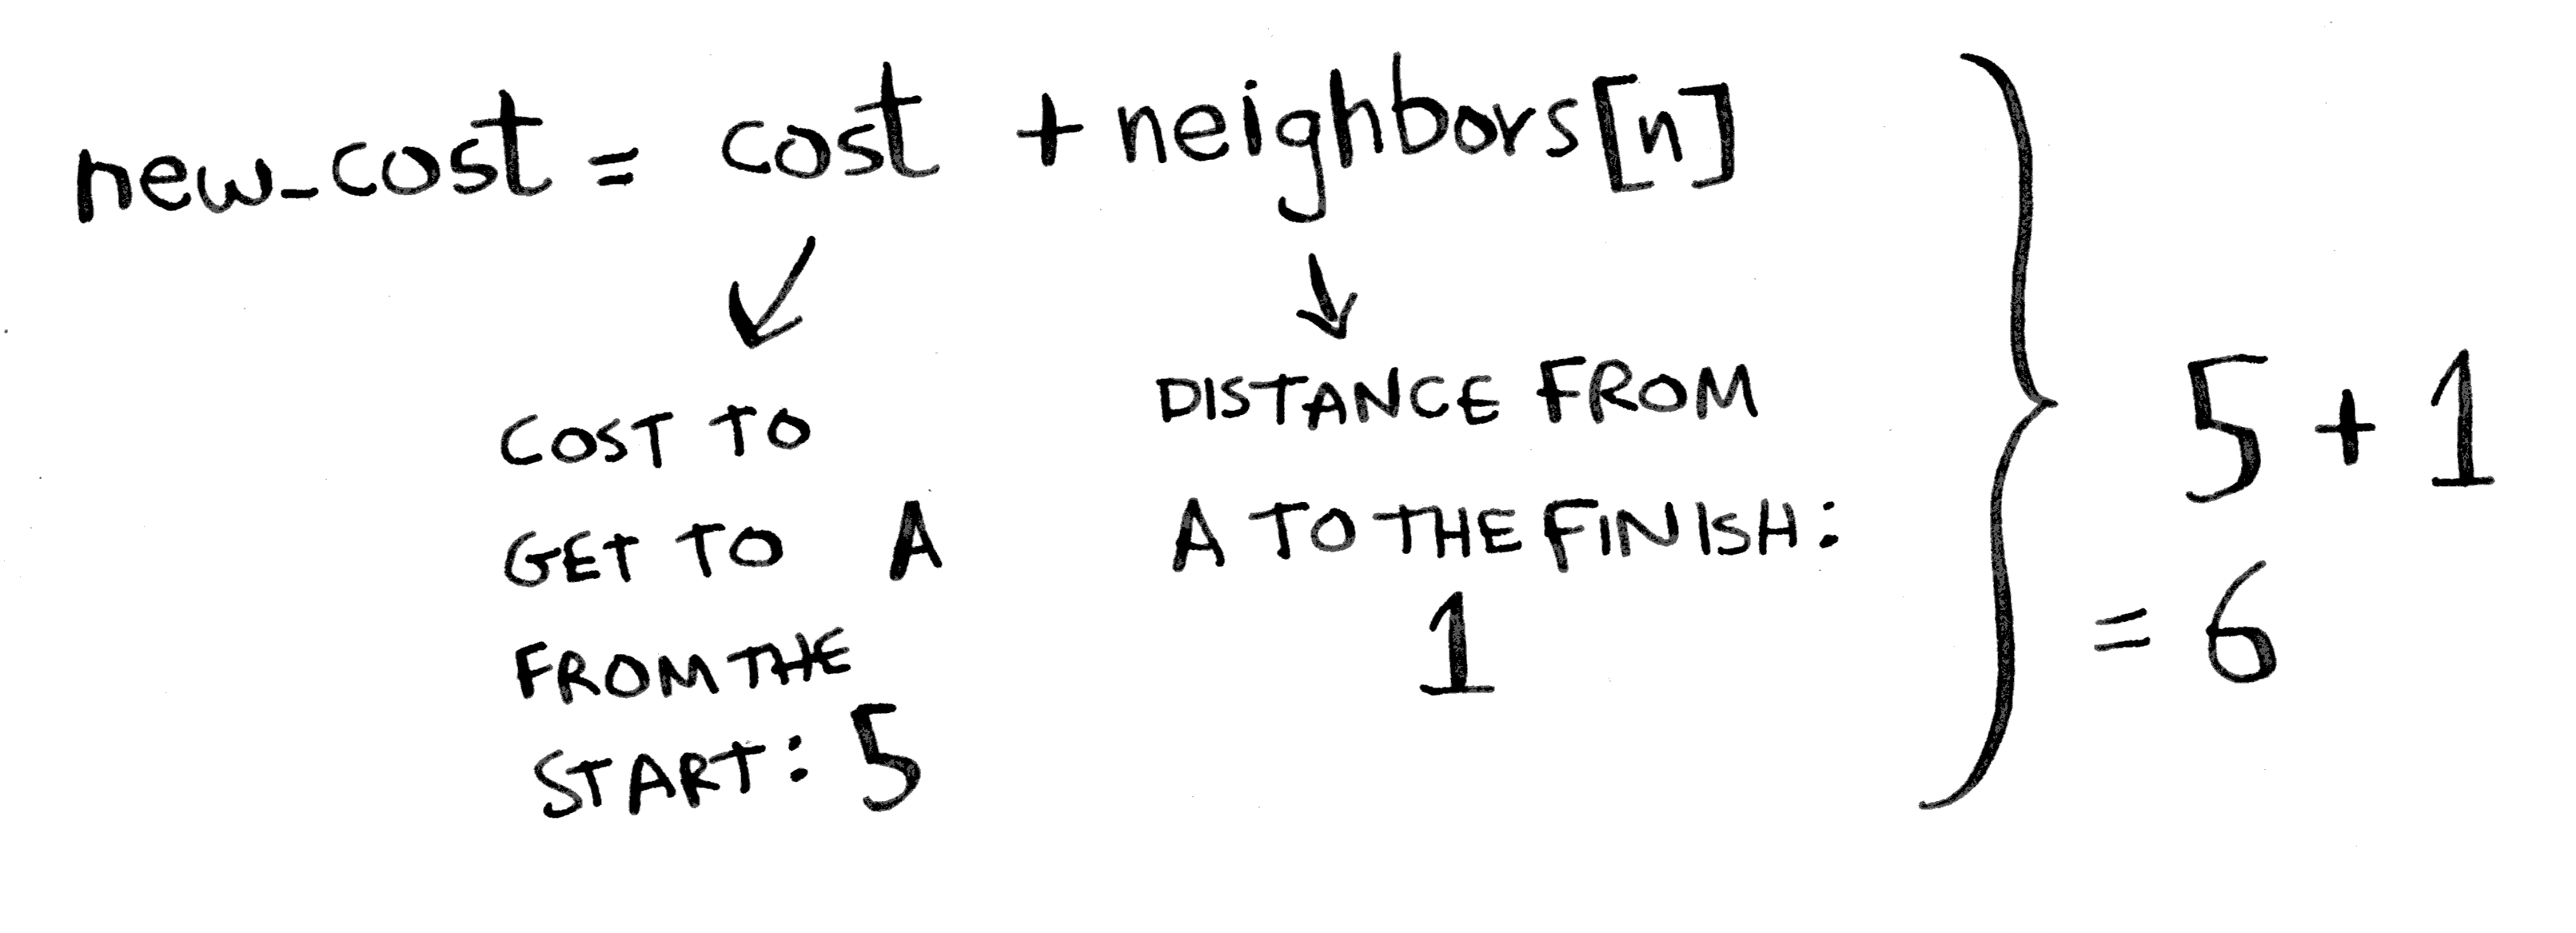 new_cost = cost + neighbors[n]
COST TO
GET TO A
FROM THE
START: 5
DISTANCE FROM
A TO THE FINISH:
1
5 + 1
= 6